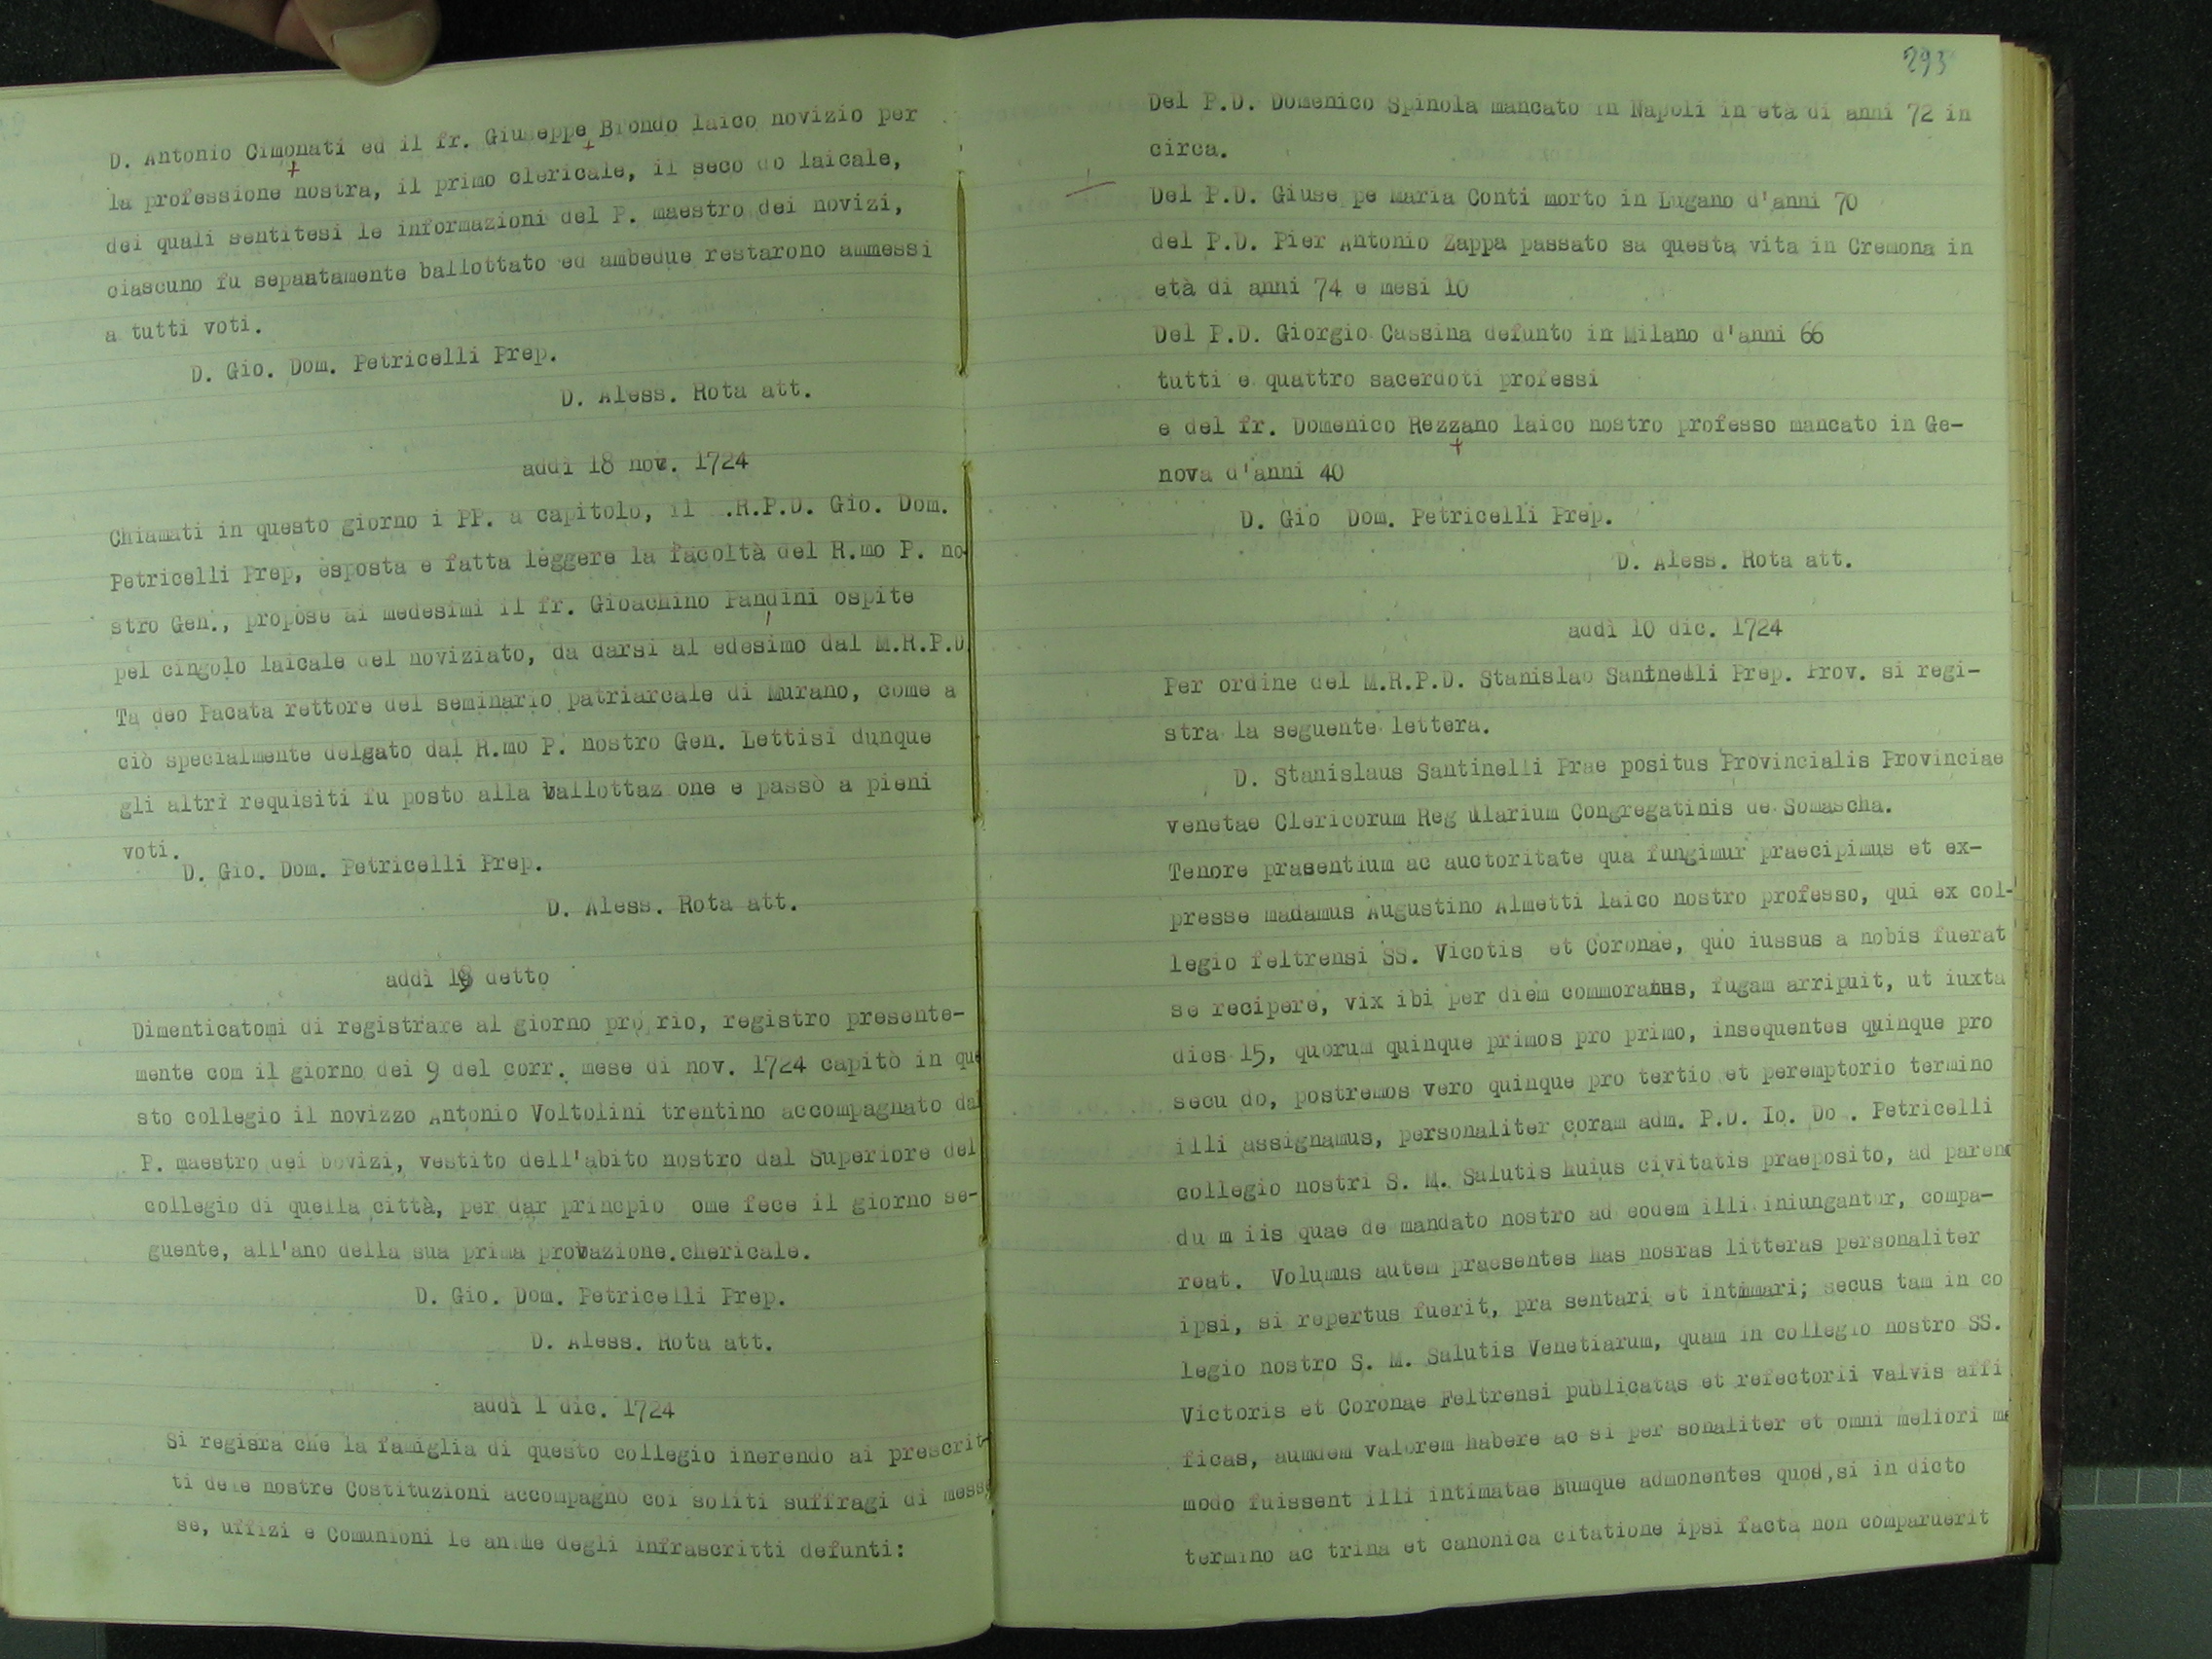 D. Antonio Cimonati ed il fr. Giuseppe Brondo laico novizio per
la professione nostra, il primo clericale, il seco do laicale,
dei quali sentitesi le informazioni del P. maestro dei novizi,
ciascuno fu sepaatamente ballottato ed ambedue restarono ammessi
a tutti voti.
D. Gio. Dom. Petricelli Prep.
D. Aless. Rota att.
addì 18 nov. 1724
Chiamati in questo giorno i PP. a capitolo, il .R.P.D. Gio. Dom.
Petricelli Prep, esposta e fatta leggere la facoltà del R.mo P. no
stro Gen., propose ai medesimi il fr. Gioachino Pandini ospite
pel cingolo laicale del noviziato, da darsi al edesimo dal M.R.P.D.
Ta deo Pacata rettore del seminario patriarcale di Murano, come a
ciò specialmente delgato dal R.mo P. nostro Gen. Lettisi dunque
gli altri requisiti fu posto alla ballottaz one e passò a pieni
voti.
D. Gio. Dom. Petricelli Prep.
D. Aless. Rota att.
addì 19 detto
Dimenticatomi di registrare al giorno pro rio, registro presente-
mente com il giorno dei 9 del corr. mese di nov. 1724 capitò in que
sto collegio il novizzo Antonio Voltolini trentino accompagnato dal
P. maestro dei bovizi, vestito dell'abito nostro dal Superiore del
collegio di quella città, per dar princpio ome fece il giorno se-
guente, all'ano della sua prima probazione.chericale.
D. Gio. Dom. Petricelli Prep.
D. Aless. Rota att.
addì 1 dic. 1724
Si regisra che la famiglia di questo collegio inerendo ai prescrit-
ti dele nostre Costituzioni accompagnò coi soliti suffragi di mess
se, uffizi e Comunioni le anime degli infrascritti defunti:
293
Del P.D. Domenico Spinola mancato in Napoli in età di anni 72 in
circa.
Del P.D. Giuse pe Maria Conti morto in Lugano d'anni 70
del P.D. Pier Antonio Zappa passato sa questa vita in Cremona in
età di anni 74 e mesi 10
Del P.D. Giorgio Cassina defunto in Milano d'anni 66
tutti e quattro sacerdoti professi
e del fr. Domenico Rezzano laico nostro professo mancato in Ge-
nova d'anni 40
D. Gio Dom. Petricelli Prep.
D. Aless. Rota att.
addì 10 dic. 1724
Per ordine del M.R.P.D. Stanislao Santinelli Prep. Prov. si regi-
stra la seguente lettera.
D. Stanislaus Santinelli Prae positus Provincialis Provinciae
venetae Clericorum Reg ularium Congregatinis de Somascha.
Tenore prasentium ac auctoritate qua fungimur praecipimus et ex-
presse madamus Augustino Almetti laico nostro professo, qui ex col-
legio feltrensi SS. Vicotis et Coronae, quo iussus a nobis fuerat
se recipere, vix ibi per diem commoratus, fugam arripuit, ut iuxta
dies 15, quorum quinque primos pro primo, insequentes quinque pro
secu do, postremos vero quinque pro tertio et peremptorio termino
illi assignamus, personaliter coram adm. P.D. Io. Do . Petricelli
collegio nostri S. M. Salutis huius civitatis praeposito, ad paren
du m iis quae de mandato nostro ad eodem illi iniungantur, compa-
reat. Volumus autem praesentes has nosras litteras personaliter
ipsi, si repertus fuerit, pra sentari et intimari; secus tam in co
legio nostro S. M. Salutis Venetiarum, quam in collegio nostro SS.
Victoris et Coronae Feltrensi publicatas et refectorii valvis affi
ficas, aumdem valorem habere ac si per sonaliter et omni meliori
modo fuissent illi intimatae Eumque admonentes quod,si in dicto
termino ac trina et canonica citatione ipsi facta non comparuerit